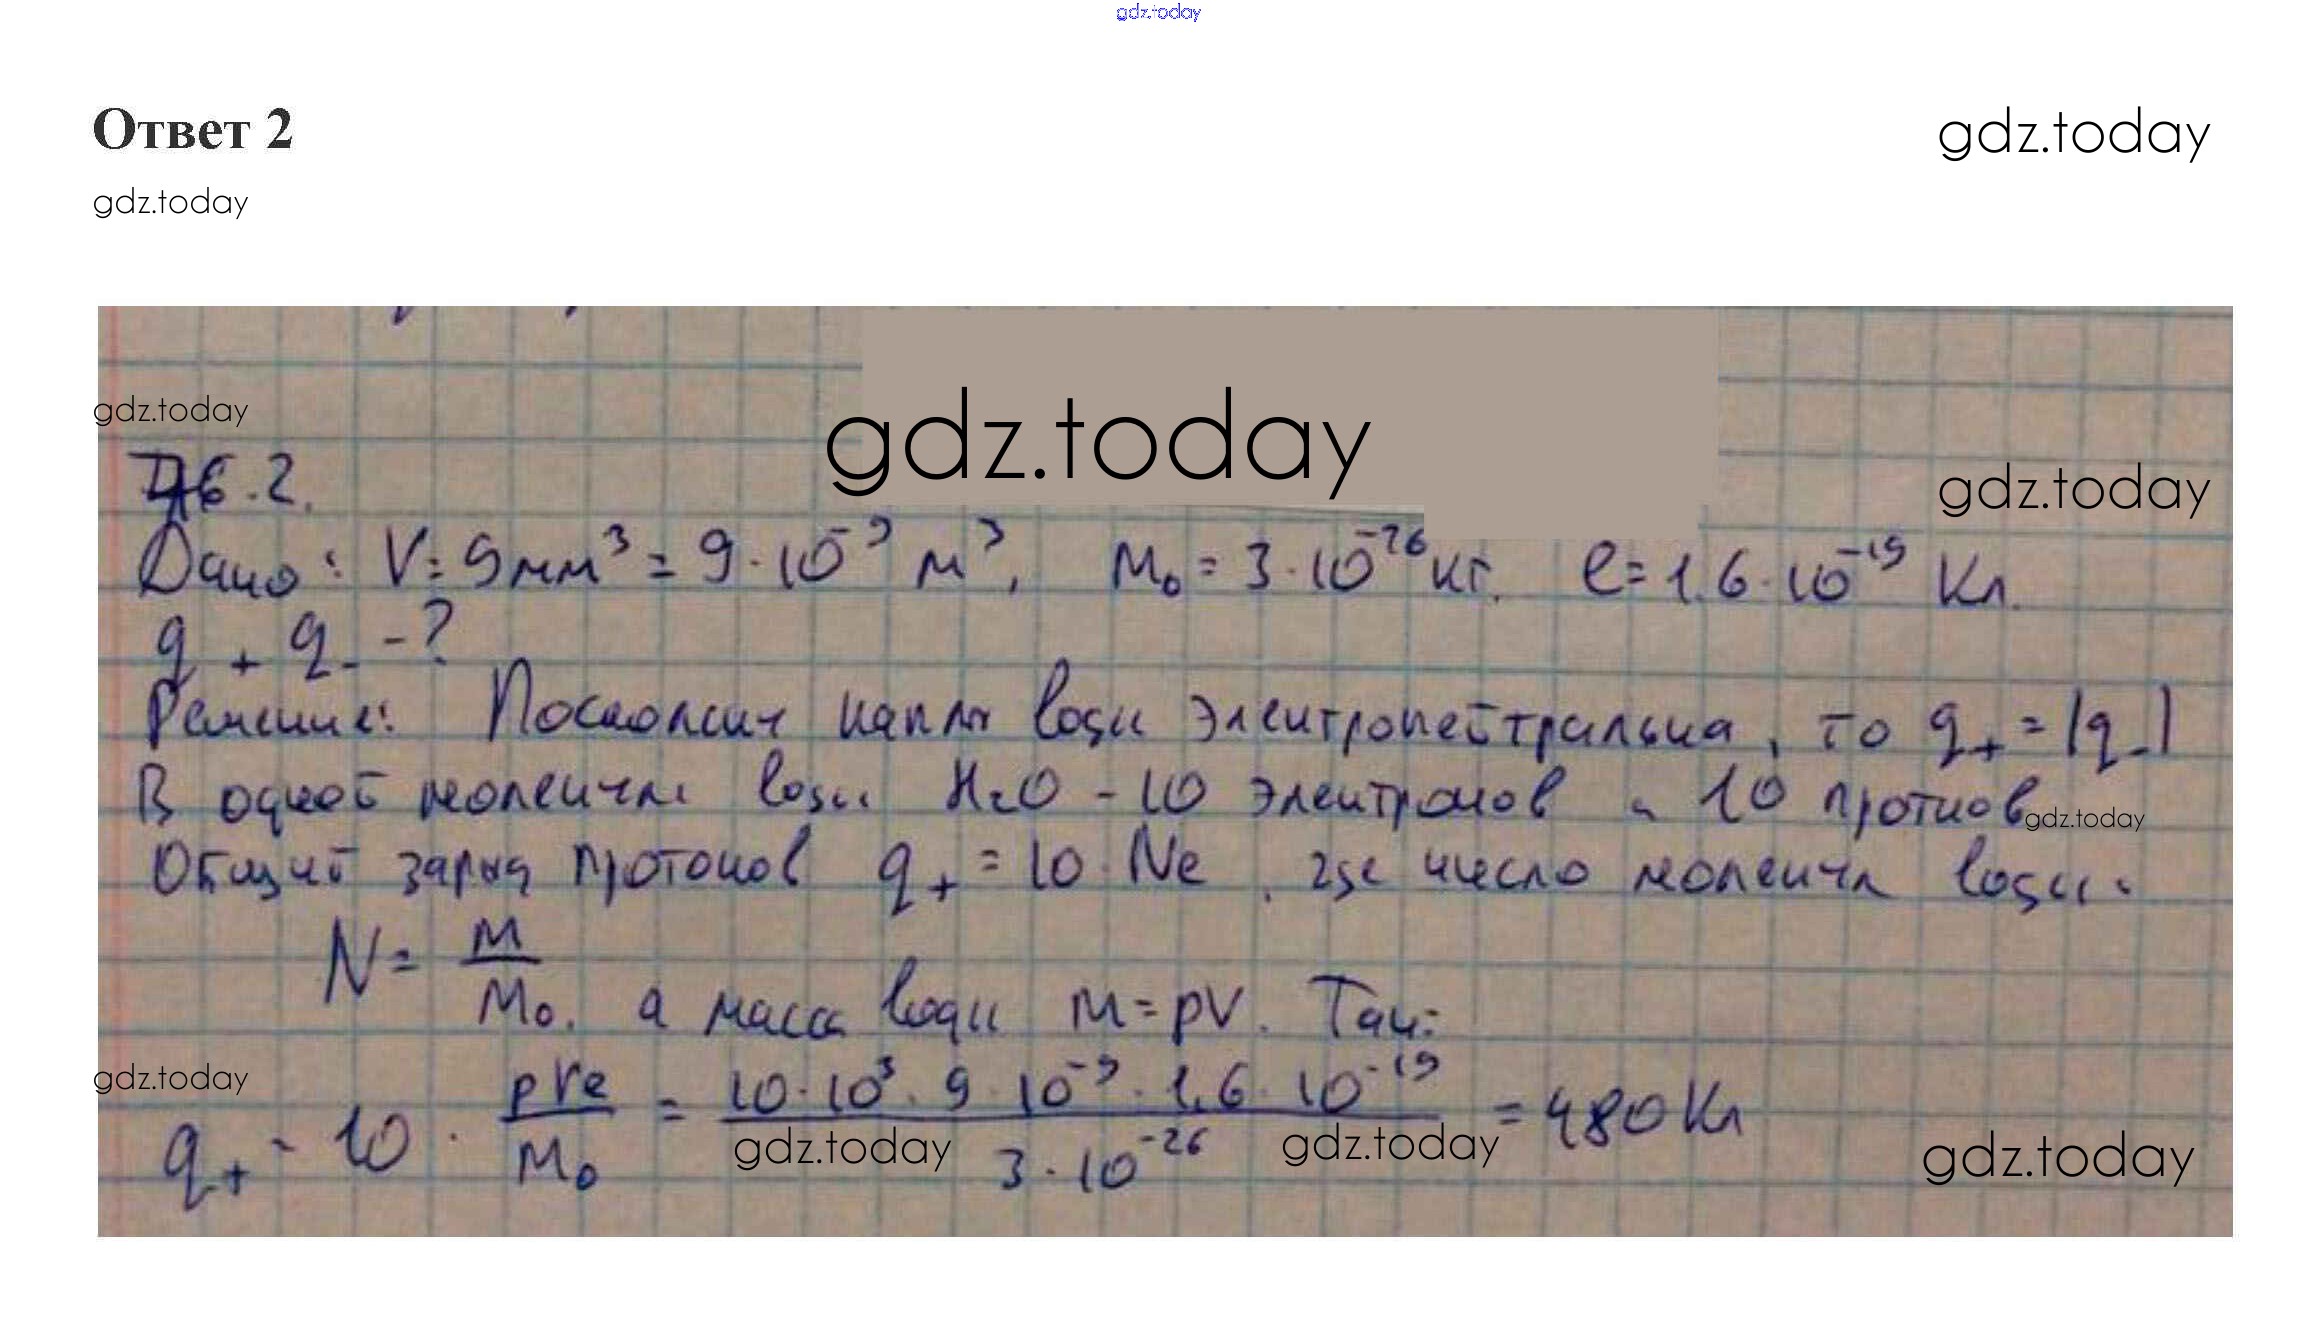 gdz.today
Ответ 2
gdz.today
gdz.today
gdz.today
gdz.today
gdz.today
Д6.2.
Дано: V = 9 мм³ = 9 · 10⁻⁹ м³, m₀ = 3 · 10⁻²⁶ кг. e = 1,6 · 10⁻¹⁹ Кл.
q₊ q₋ - ?
Решение: Поскольку капля воды электронейтральна, то q₊ = |q₋|
В одной молекуле воды H₂O - 10 электронов и 10 протнов
gdz.today
Общий заряд протонов q₊ = 10 · Ne, где число молекул воды:
N = m/m₀, а масса воды m = ρV. Так:
gdz.today
q₊ = 10 · ρVe/m₀ = 10 · 10³ · 9 · 10⁻⁹ · 1,6 · 10⁻¹⁹ / 3 · 10⁻²⁶ = 480 Кл
gdz.today
gdz.today
gdz.today